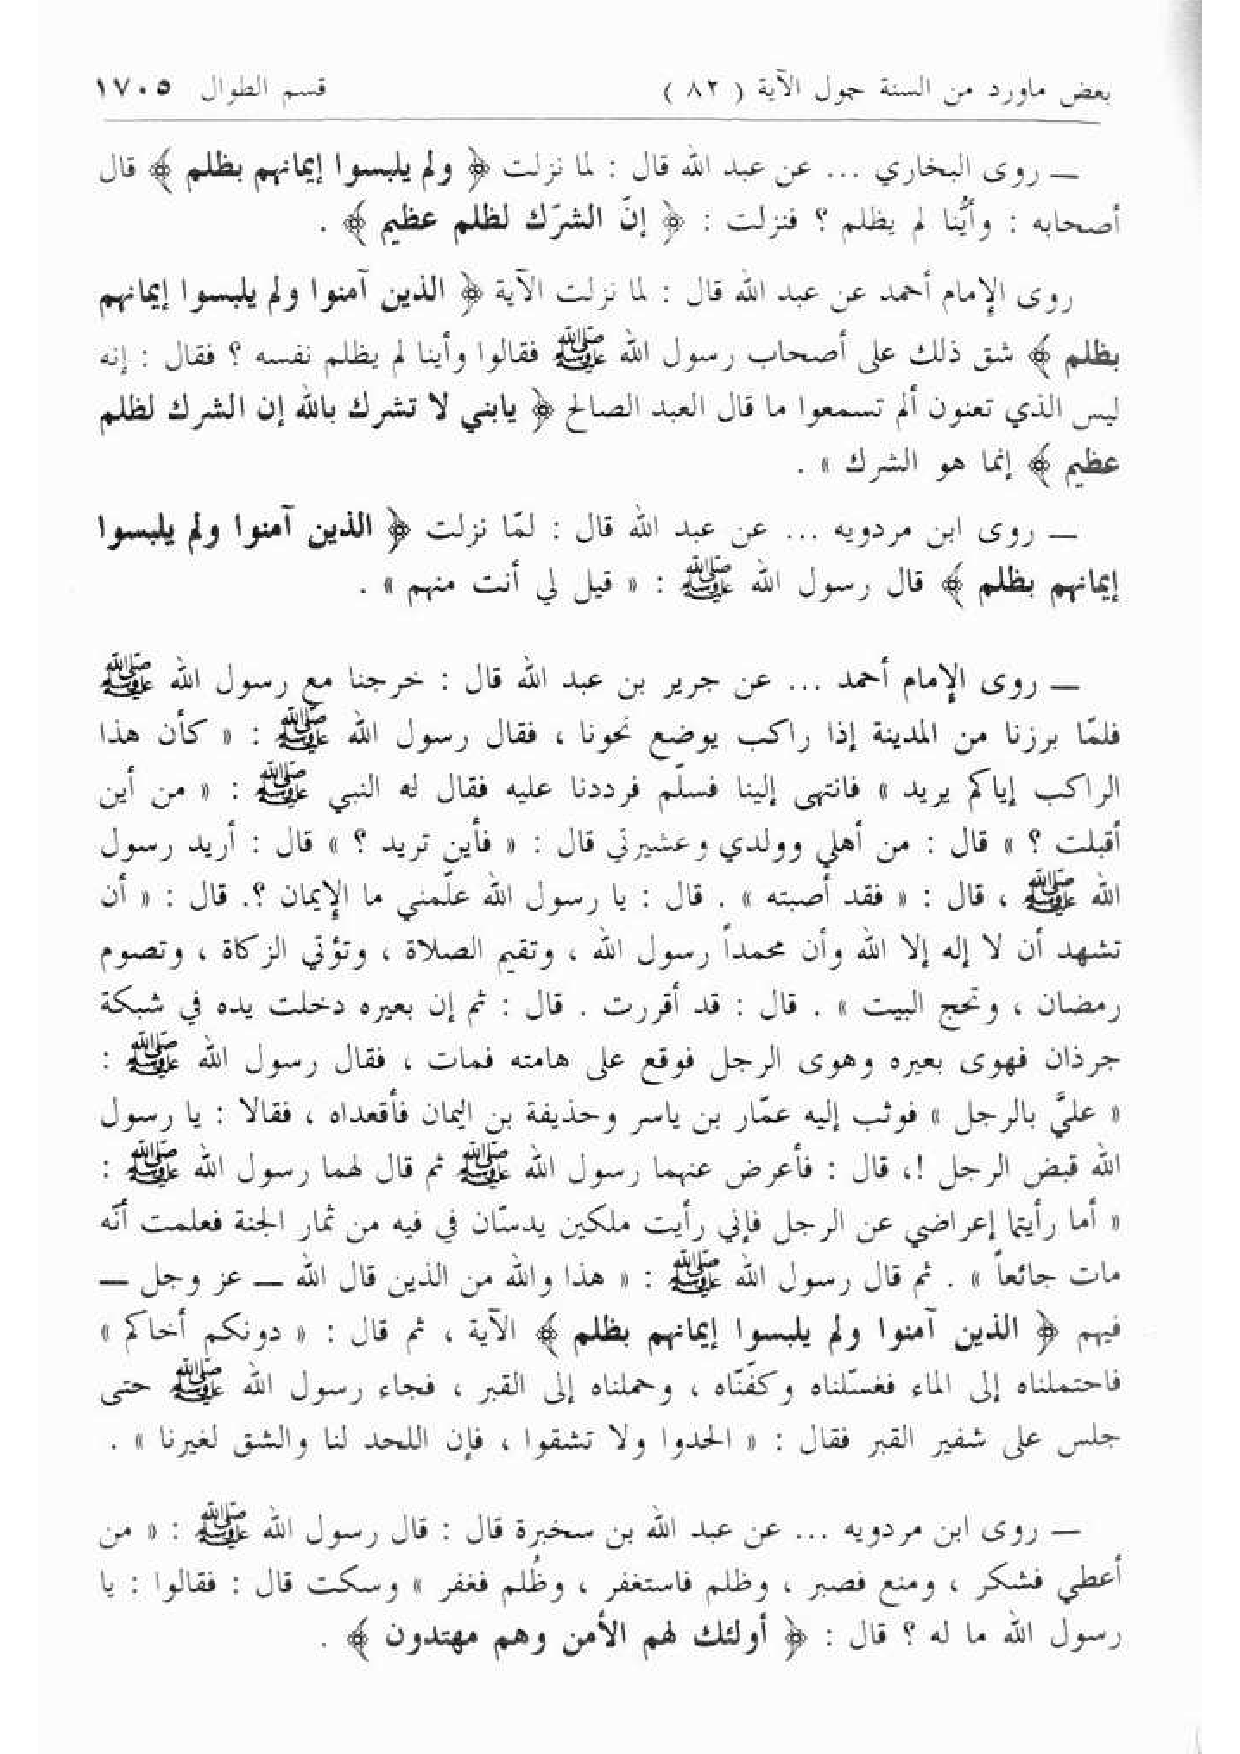 بعض ماورد من السنة حول الآية ( ٨٢ ) قسم الطوال ١٧٠٥
— روى البخاري ... عن عبد الله قال : لما نزلت ﴿ ولم يلبسوا إيمانهم بظلم ﴾ قال
أصحابه : وأيُّنا لم يظلم ؟ فنزلت : ﴿ إنّ الشرّك لظلم عظيم ﴾ .
روى الإمام أحمد عن عبد الله قال : لما نزلت الآية ﴿ الذين آمنوا ولم يلبسوا إيمانهم
بظلم ﴾ شق ذلك على أصحاب رسول الله ﷺ فقالوا وأينا لم يظلم نفسه ؟ فقال : إنه
ليس الذي تعنون ألم تسمعوا ما قال العبد الصالح ﴿ يابني لا تشرك بالله إن الشرك لظلم
عظيم ﴾ إنما هو الشرك » .
— روى ابن مردويه ... عن عبد الله قال : لمّا نزلت ﴿ الذين آمنوا ولم يلبسوا
إيمانهم بظلم ﴾ قال رسول الله ﷺ : « قيل لي أنت منهم » .
— روى الإمام أحمد ... عن جرير بن عبد الله قال : خرجنا مع رسول الله ﷺ
فلمّا برزنا من المدينة إذا راكب يوضع نحونا ، فقال رسول الله ﷺ : « كأن هذا
الراكب إياكم يريد » فانتهى إلينا فسلّم فرددنا عليه فقال له النبي ﷺ : « من أين
أقبلت ؟ » قال : من أهلي وولدي وعشيرتي قال : « فأين تريد ؟ » قال : أريد رسول
الله ﷺ ، قال : « فقد أصبته » . قال : يا رسول الله علّمني ما الإيمان ؟. قال : « أن
تشهد أن لا إله إلا الله وأن محمداً رسول الله ، وتقيم الصلاة ، وتؤتي الزكاة ، وتصوم
رمضان ، وتحج البيت » . قال : قد أقررت . قال : ثم إن بعيره دخلت يده في شبكة
جرذان فهوى بعيره وهوى الرجل فوقع على هامته فمات ، فقال رسول الله ﷺ :
« عليَّ بالرجل » فوثب إليه عمّار بن ياسر وحذيفة بن اليمان فأقعداه ، فقالا : يا رسول
الله قبض الرجل !، قال : فأعرض عنهما رسول الله ﷺ ثم قال لهما رسول الله ﷺ :
« أما رأيتما إعراضي عن الرجل فإني رأيت ملكين يدسّان في فيه من ثمار الجنة فعلمت أنّه
مات جائعاً » . ثم قال رسول الله ﷺ : « هذا والله من الذين قال الله — عز وجل —
فيهم ﴿ الذين آمنوا ولم يلبسوا إيمانهم بظلم ﴾ الآية ، ثم قال : « دونكم أخاكم »
فاحتملناه إلى الماء فغسّلناه وكفّنّاه ، وحملناه إلى القبر ، فجاء رسول الله ﷺ حتى
جلس على شفير القبر فقال : « الحدوا ولا تشقوا ، فإن اللحد لنا والشق لغيرنا » .
— روى ابن مردويه ... عن عبد الله بن سخبرة قال : قال رسول الله ﷺ : « من
أعطي فشكر ، ومنع فصبر ، وظلم فاستغفر ، وظُلم فغفر » وسكت قال : فقالوا : يا
رسول الله ما له ؟ قال : ﴿ أولئك لهم الأمن وهم مهتدون ﴾ .